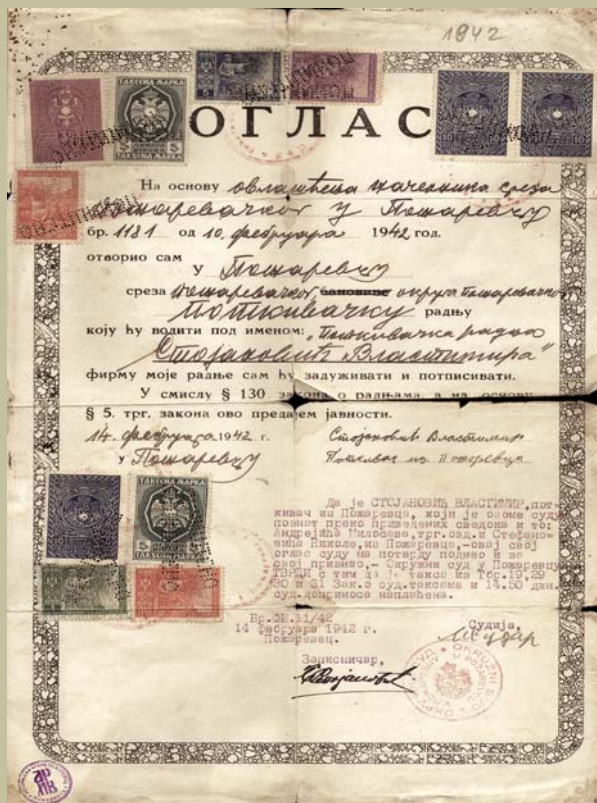 1942
ОГЛАС
На основу овлашћења начелника среза
пожаревачког у Пожаревцу
бр. 1181 од 10. фебруара 1942 год.
отворио сам
У Пожаревцу
среза пожаревачког, бановине округа пожаревачког
поткивачку радњу
коју ћу водити под именом: „Поткивачка радња
Стојановић Властимира"
фирму моје радње сам ћу задуживати и потписивати.
У смислу § 130 закона о радњама, а на основу
§ 5. трг. закона ово предајем јавности.
14. фебруара 1942 г.
у Пожаревцу
Стојановић Властимир
Поткивач из Пожаревца
Да је СТОЈАНОВИЋ ВЛАСТИМИР, пот-
кивач из Пожаревца, који је овоме суду
познат преко приведених сведока и то:
Андрејића Милосава, трг. овд. и Стефано-
вића Николе, из Пожаревца,-овај свој
оглас суду на потврду поднео и за
свој признао,- Окружни суд у Пожаревцу
ТВРДИ с тим да је такса из Тбр. 19, 29
30 и 31 Зак. о суд. таксама и 14.50 дин.
суд. доприноса наплаћена.
11/42
14 фебруара 1942 г.
Пожаревац.
Судија,
Записничар,
ТАКСЕНА МАРКА
5
ТАКСЕНА МАРКА
5